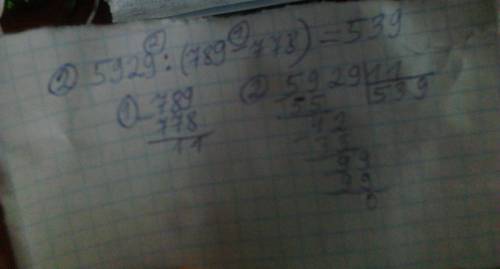 ② 5929 : (789 - 778) = 539
① 789
778
11
② 5929 11
55 539
42
33
99
99
0